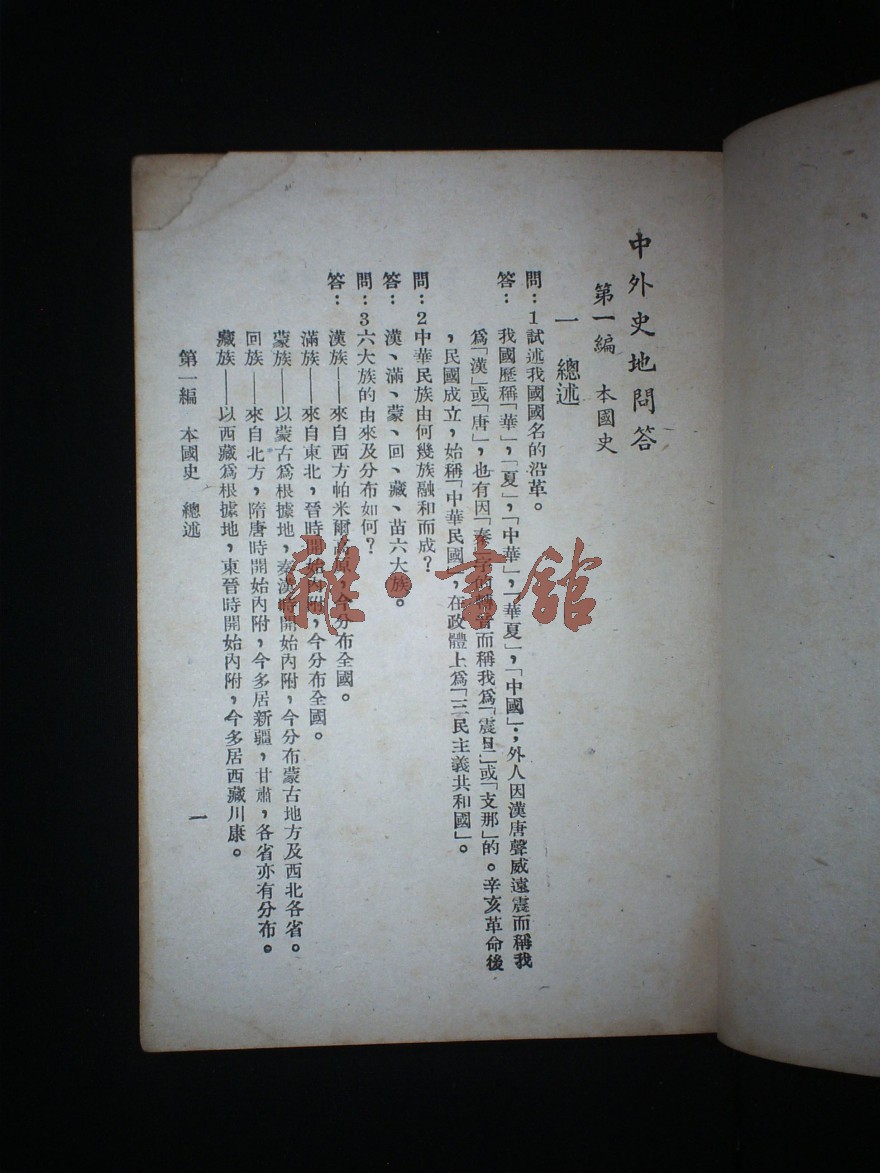 中外史地問答
第一編　本國史
一　總述
問：1試述我國國名的沿革。
答：我國歷稱「華」，「夏」，「中華」，「華夏」，「中國」；外人因漢唐聲威遠震而稱我
爲「漢」或「唐」，也有因「秦」字的轉音而稱我爲「震旦」或「支那」的。辛亥革命後
，民國成立，始稱「中華民國」，在政體上爲「三民主義共和國」。
問：2中華民族由何幾族融和而成？
答：漢、滿、蒙、回、藏、苗六大族。
問：3六大族的由來及分布如何？
答：漢族——來自西方帕米爾高原，今分布全國。
滿族——來自東北，晉時開始內附，今分布全國。
蒙族——以蒙古爲根據地，秦漢時開始內附，今分布蒙古地方及西北各省。
回族——來自北方，隋唐時開始內附，今多居新疆，甘肅，各省亦有分布。
藏族——以西藏爲根據地，東晉時開始內附，今多居西藏川康。
第一編　本國史　總述
一
雜·書館